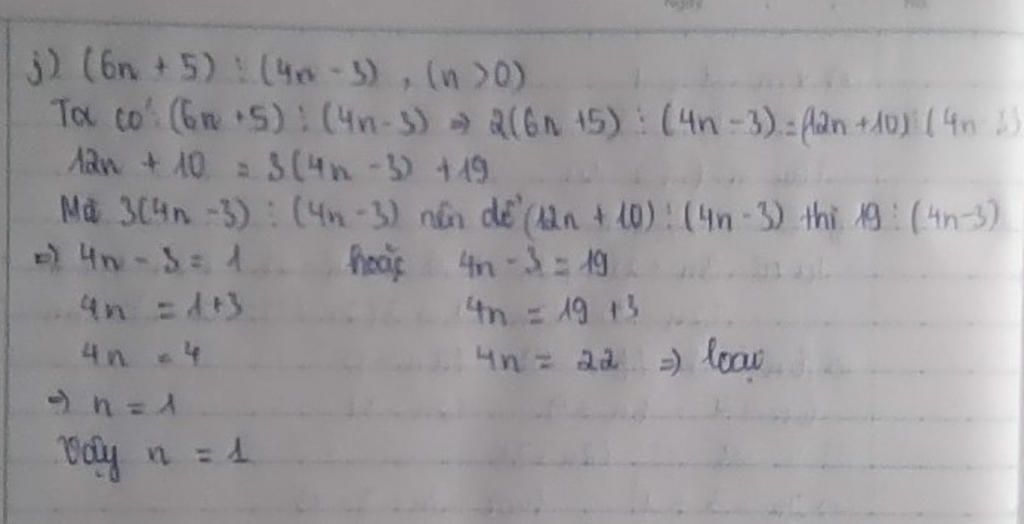 Ngày No.
j) (6n + 5) ⋮ (4n - 3) , (n > 0)
Ta có: (6n + 5) ⋮ (4n - 3) ⇒ 2(6n + 5) ⋮ (4n - 3) = (12n + 10) ⋮ (4n - 3)
12n + 10 = 3(4n - 3) + 19
Mà 3(4n - 3) ⋮ (4n - 3) nên để (12n + 10) ⋮ (4n - 3) thì 19 ⋮ (4n - 3)
⇒ 4n - 3 = 1 hoặc 4n - 3 = 19
4n = 1 + 3 4n = 19 + 3
4n = 4 4n = 22 ⇒ loại
⇒ n = 1
Vậy n = 1